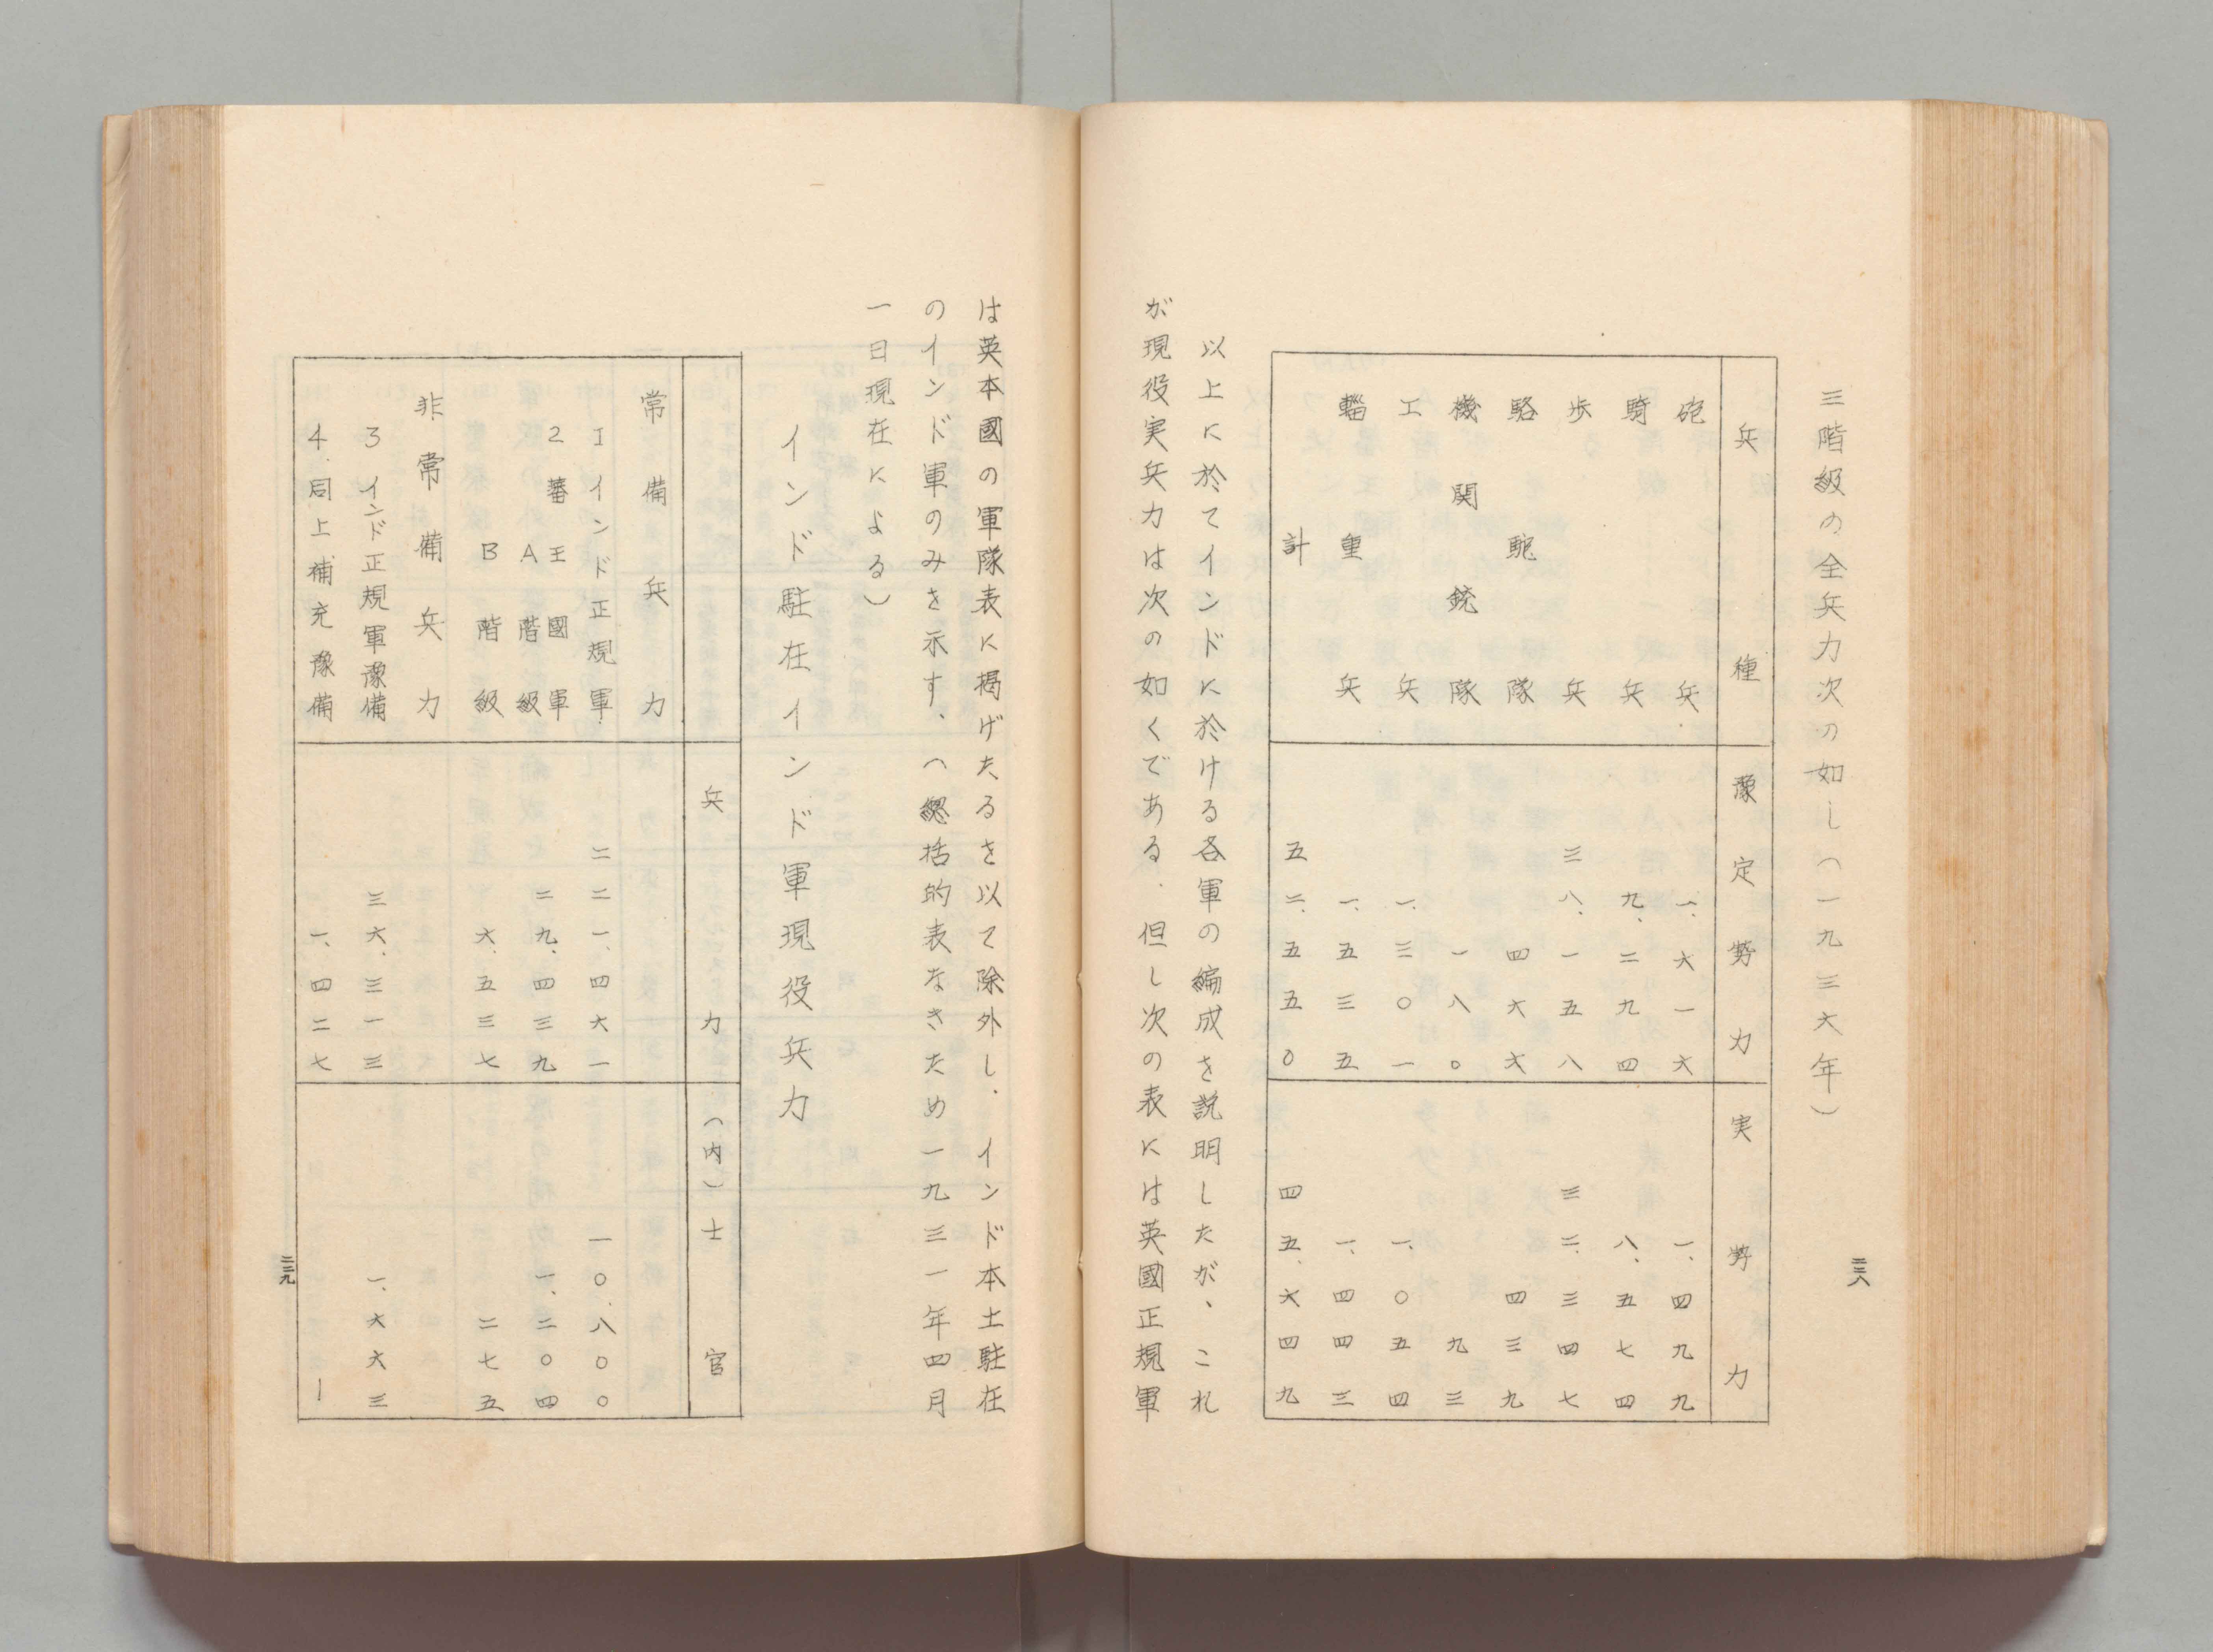 二三八
三階級の全兵力次の如し(一九三六年)
兵種 豫定勢力 実勢力
砲兵 一、六一六 一、四九九
騎兵 九、二九四 八、五七四
歩兵 三八、一五八 三二、三四七
駱駝隊 四六六 四三九
機関銃隊 一八〇 九三
工兵 一、三〇一 一、〇五四
輜重兵 一、五三五 一、四四三
計 五二、五五〇 四五、六四九
以上に於てインドに於ける各軍の編成を説明したが、これ
が現役実兵力は次の如くである.但し次の表には英國正規軍
は英本國の軍隊表に掲げたるを以て除外し.インド本土駐在
のインド軍のみを示す、(総括的表なきため一九三一年四月
一日現在による)
インド駐在インド軍現役兵力
兵力 (内)士官
常備兵力
1 インド正規軍 二二一、四六一 一〇、八〇〇
2 蕃王國軍
A階級 二九、四三九 一、二〇四
B階級 六、五三七 二七五
非常備兵力
3 インド正規軍豫備 三六、三一三 一、六六三
4 同上補充豫備 一、四二七 ー
二三九